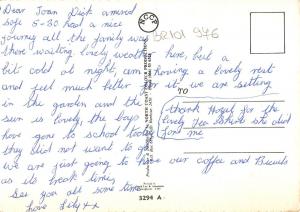 Dear Joan Dick arrived
safe 5-30 had a nice
journey all the family was
there waiting lovely weather here, but a
bit cold at night, am having a lovely rest
and feel much better for it we are setting
in the garden and the
sun is lovely, the boys
have gone to school today
they did not want to go
we are just going to have our coffee and Biscuits
as its break time,
See you all some time
Love Lily xx
BR101 976
TO
Thank Hazel for the
lovely Tea she did
for me
3294 A